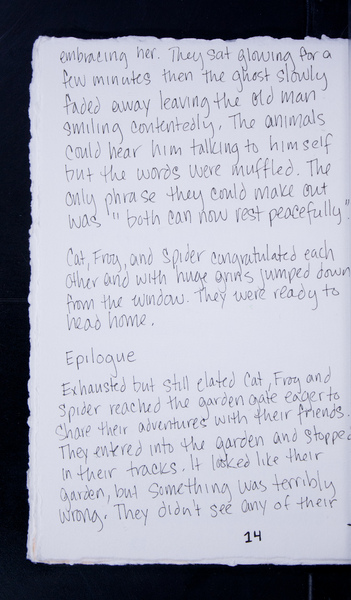 embracing her. They sat glowing for a
few minutes then the ghost slowly
faded away leaving the old man
smiling contentedly. The animals
could hear him talking to himself
but the words were muffled. The
only phrase they could make out
was "both can now rest peacefully".
Cat, Frog, and Spider congratulated each
other and with huge grins jumped down
from the window. They were ready to
head home.
Epilogue
Exhausted but still elated Cat, Frog and
Spider reached the garden gate eager to
share their adventures with their friends.
They entered into the garden and stopped
in their tracks. It looked like their
garden, but something was terribly
wrong. They didn't see any of their
14